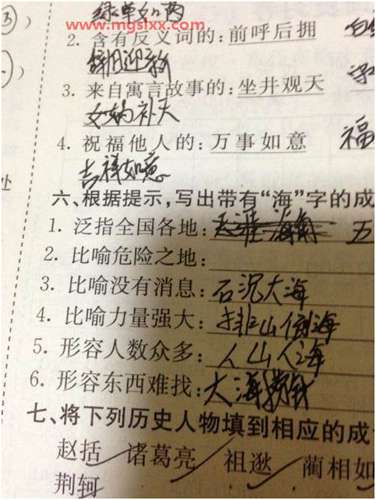 绿草如茵
www.mgslxx.com
2. 含有反义词的:前呼后拥
辞旧迎新
3. 来自寓言故事的:坐井观天
女娲补天
4. 祝福他人的:万事如意 福
吉祥如意
处
六、根据提示,写出带有“海”字的成
1. 泛指全国各地: 五
2. 比喻危险之地:
3. 比喻没有消息:石沉大海
4. 比喻力量强大:排山倒海
5. 形容人数众多:人山人海
6. 形容东西难找:大海捞针
七、将下列历史人物填到相应的成
赵括 诸葛亮 祖逖 蔺相如
荆轲